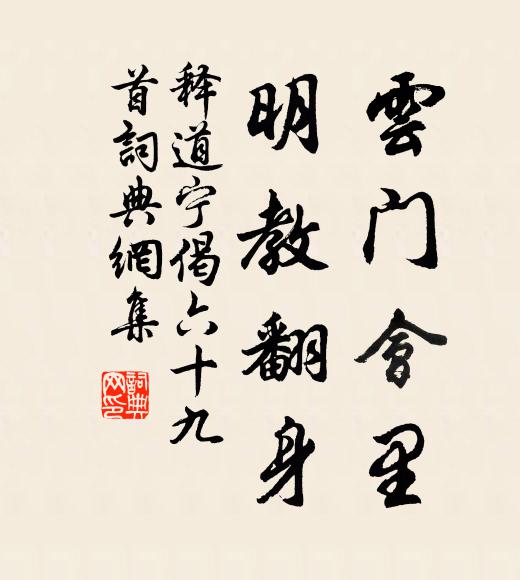 雲门會里
明教翻身
释道宁偈六十九
首詞典網集
詞典
网印